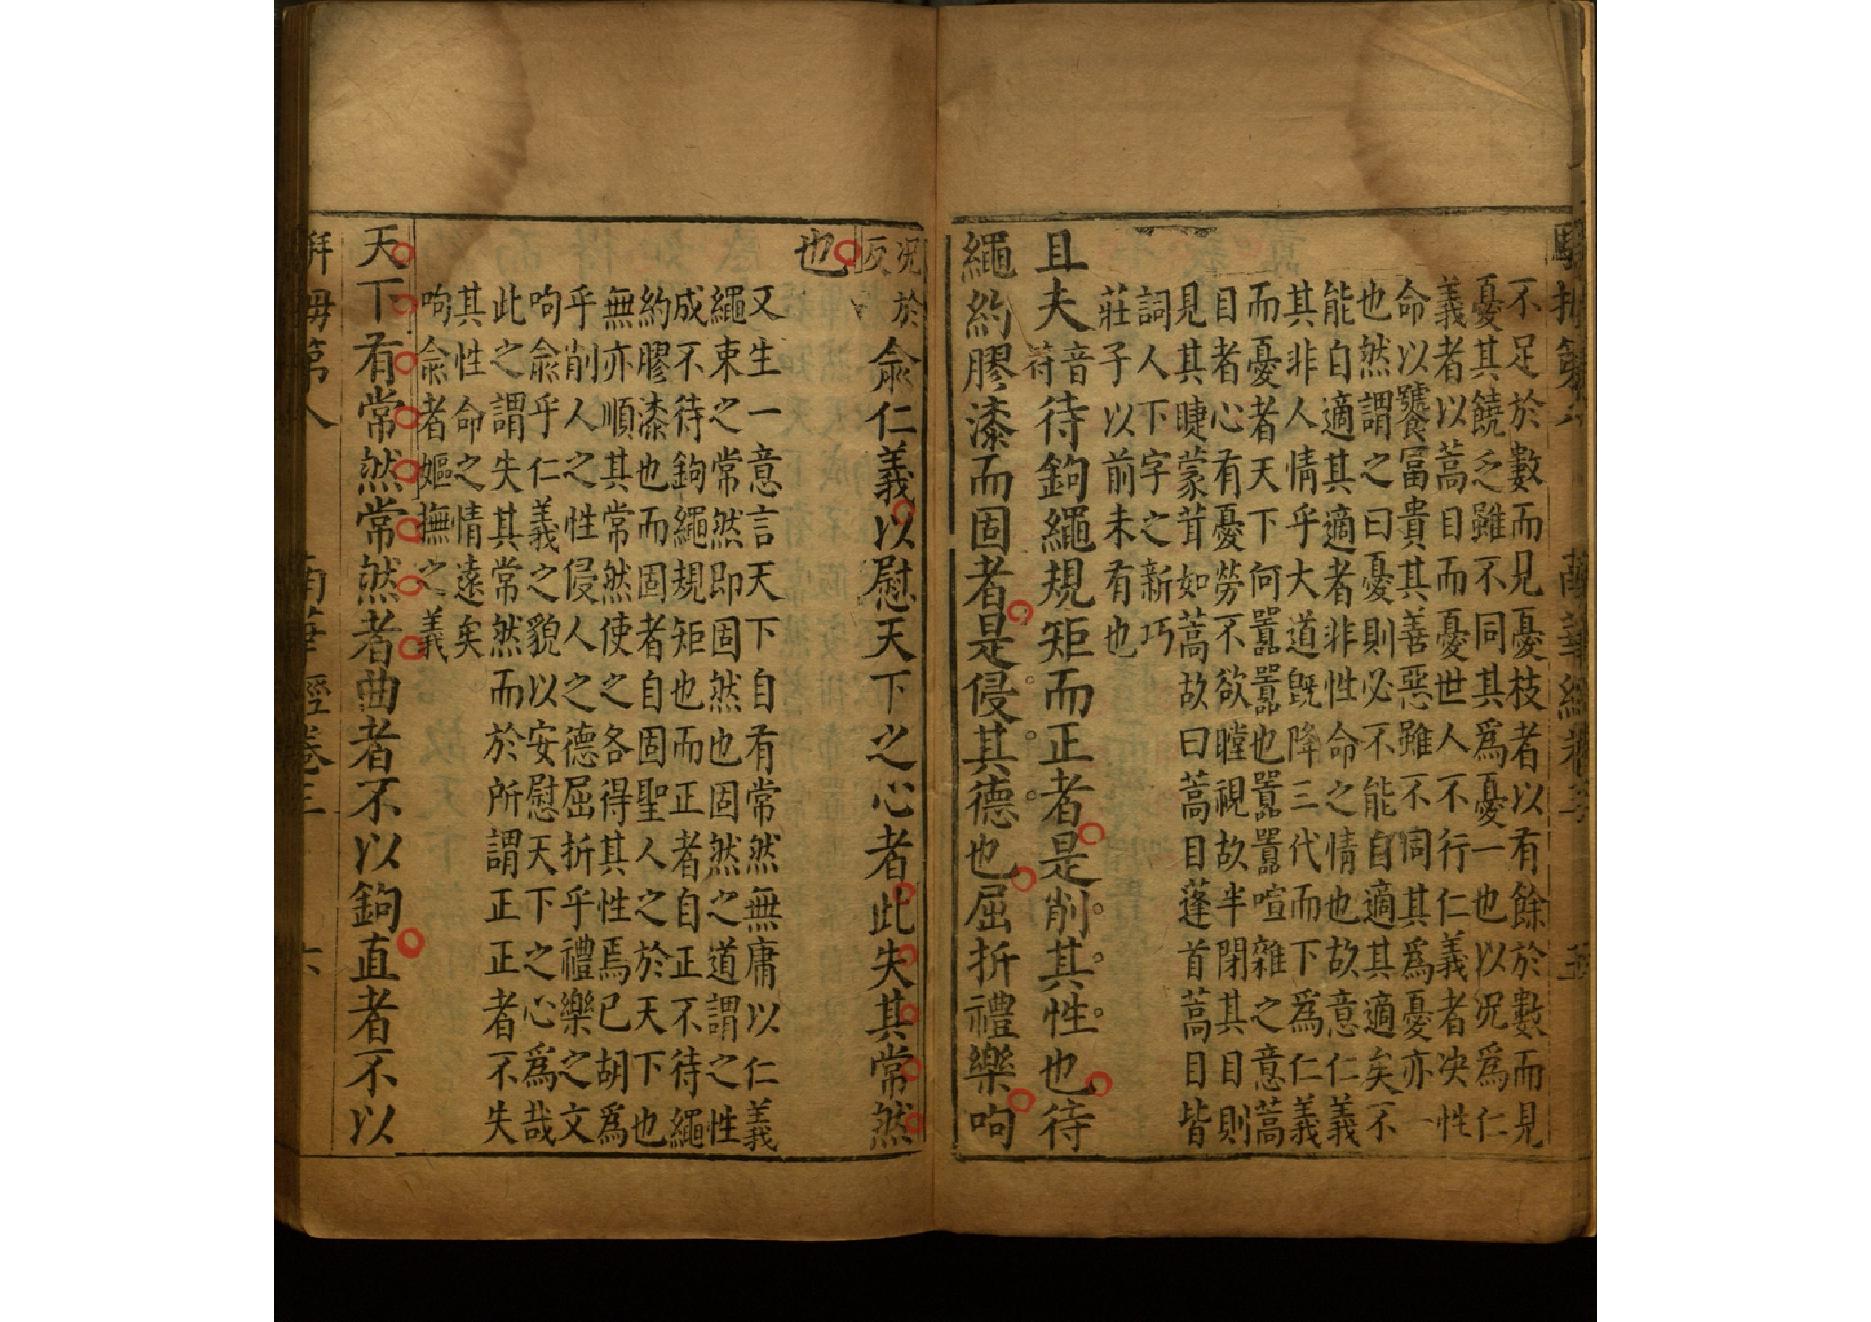 不足於數而見憂枝者以有餘於數而見
憂其饒乏雖不同其為憂一也以況為仁
義者以蒿目而憂世人不行仁義者决性
命以饕富貴其善惡雖不同其為憂亦一
也然謂之曰憂則必不能自適其適矣不
能自適其適者非性命之情也故意仁義
其非人情乎大道旣降三代而下為仁義
而憂者天下何囂囂也囂囂喧雜之意蒿
目者心有憂勞不欲瞠視故半閉其目則
見其睫蒙茸如蒿故曰蒿目蓬首蒿目皆
詞人下字之新巧
莊子以前未有也
且夫音符待鉤繩規矩而正者是削其性也待
繩約膠漆而固者是侵其德也屈折禮樂呴
况於反俞仁義以慰天下之心者此失其常然
也
又生一意言天下自有常然無庸以仁義
繩束之常然即固然也固然之道謂之性
成不待鉤繩規矩也而正者自正不待繩
約膠漆也而固者自固聖人之於天下也
無亦順其常然使之各得其性焉已胡為
乎削人之性侵人之德屈折乎禮樂之文
呴俞乎仁義之貌以安慰天下之心為哉
此之謂失其常然而於所謂正正者不失
其性命之情遠矣
呴俞者嫗撫之義
天下有常然常然者曲者不以鉤直者不以
拇第八 南華經卷三 六